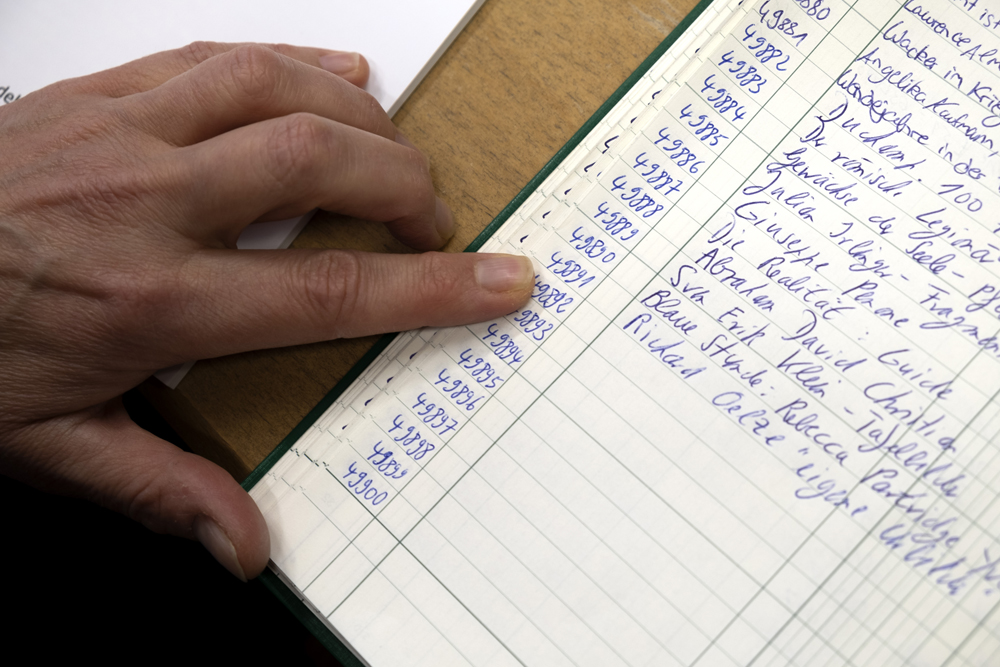 del
49880
49881
49882
49883
49884
49885
49886
49887
49888
49889
49890
49891
49892
49893
49894
49895
49896
49897
49898
49899
49900
ist
Laurence Alm
Wacker im Krieg
Angelika Kaufmann
in der
100
Der römisch. Legionä
Gewächse der Seele - Pf
Julian Irlinger - Fragmen
Giuseppe Penone
Die Realität: Guide
Abraham David Christian
Sven Erik Klein - Tafelbilder
Blaue Stunde: Rebecca Partridge
Richard Oelze "eigene Urbilder